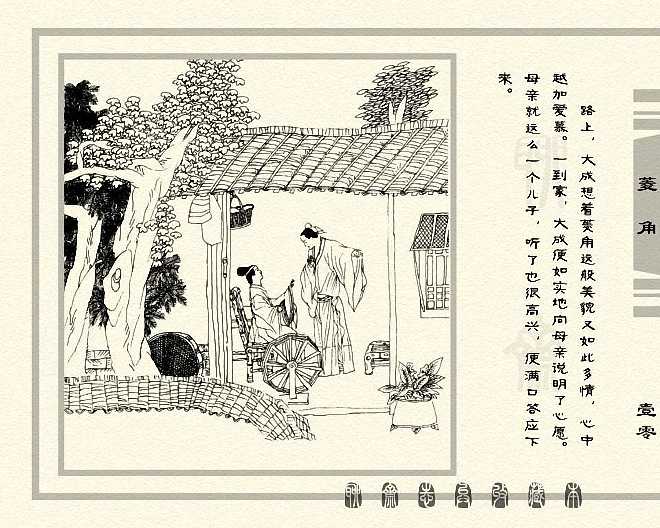 路上，大成想着菱角这般美貌又如此多情，心中
越加爱慕。一到家，大成便如实地向母亲说明了心愿。
母亲就这么一个儿子，听了也很高兴，便满口答应下
来。
菱角
壹零
聊斋志异收藏本